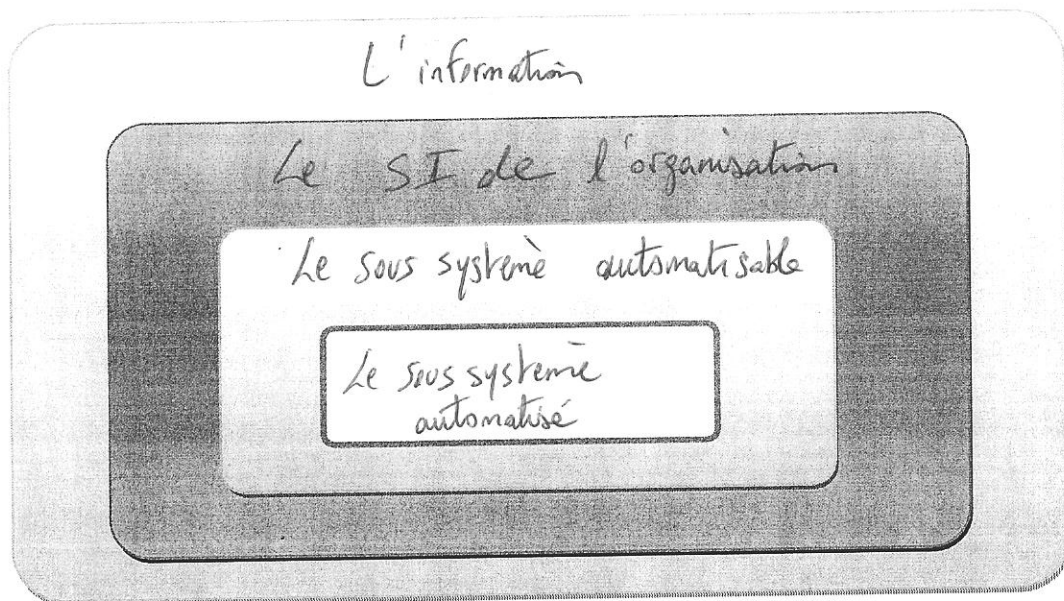 L'information
Le SI de l'organisation
Le sous système automatisable
Le sous système
automatisé